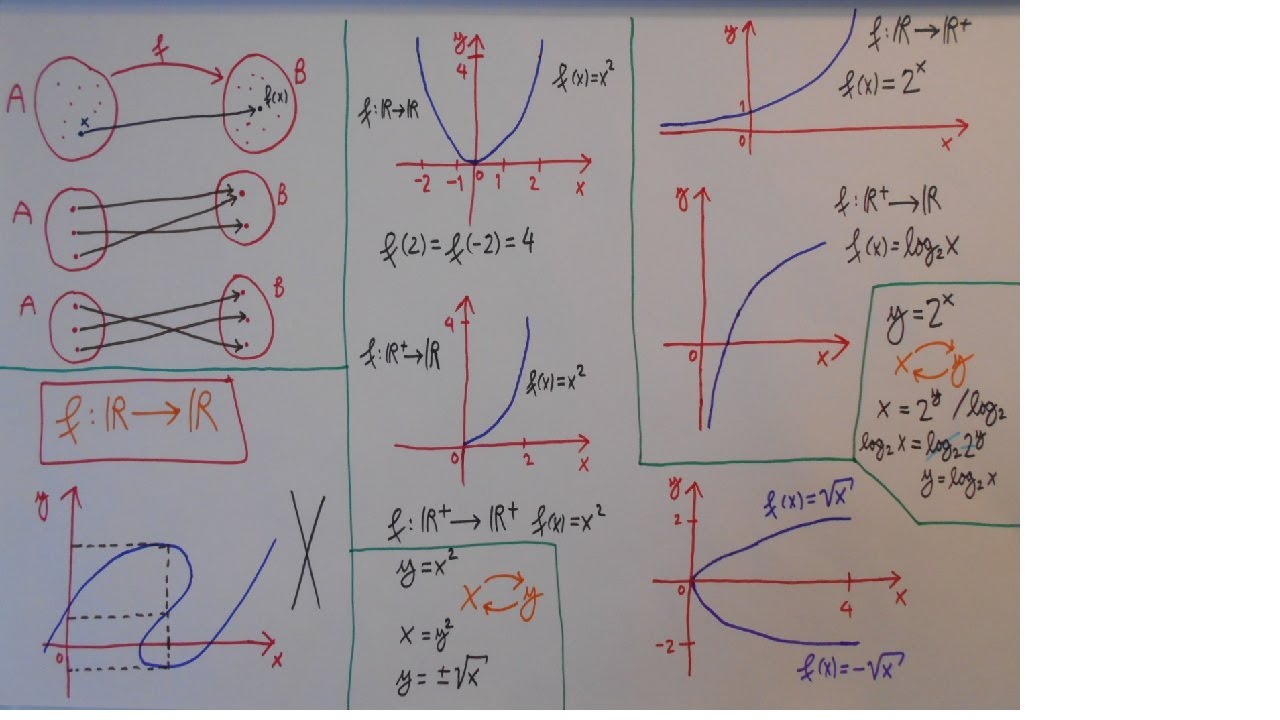 f
A
B
x
f(x)
A
B
A
B
f: ℝ → ℝ
y
0
x
y
4
f(x) = x²
f: ℝ → ℝ
-2 -1 0 1 2 x
f(2) = f(-2) = 4
4
f: ℝ⁺ → ℝ
f(x) = x²
0 2 x
f: ℝ⁺ → ℝ⁺ f(x) = x²
y = x²
x y
x = y²
y = ±√x
y
f: ℝ → ℝ⁺
f(x) = 2ˣ
1
0
x
y
f: ℝ⁺ → ℝ
f(x) = log₂x
0
x
y = 2ˣ
x y
x = 2ʸ /log₂
log₂x = log₂2ʸ
y = log₂x
y
f(x) = √x
2
0
4
x
-2
f(x) = -√x